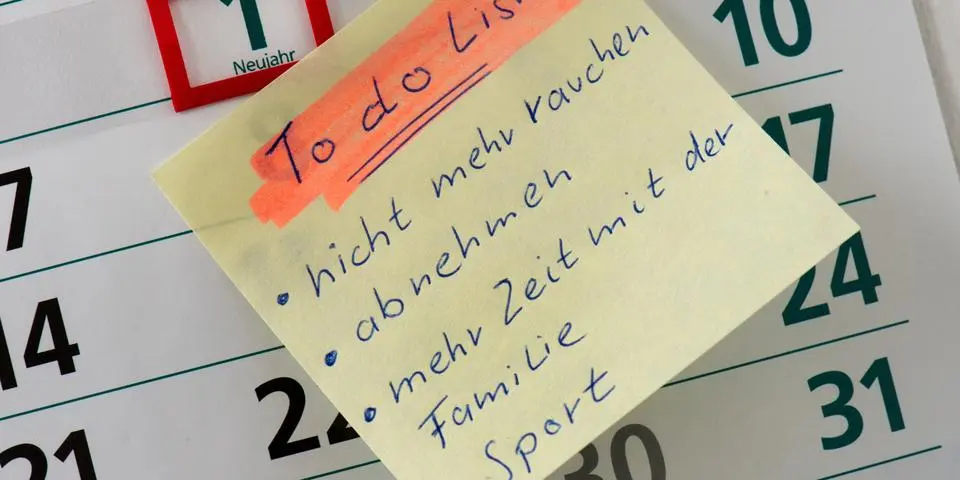 1
Neujahr
10
To do Lis
• nicht mehr rauchen
• abnehmen
• mehr Zeit mit der
Familie
Sport
7
17
14
24
21
22
30
31